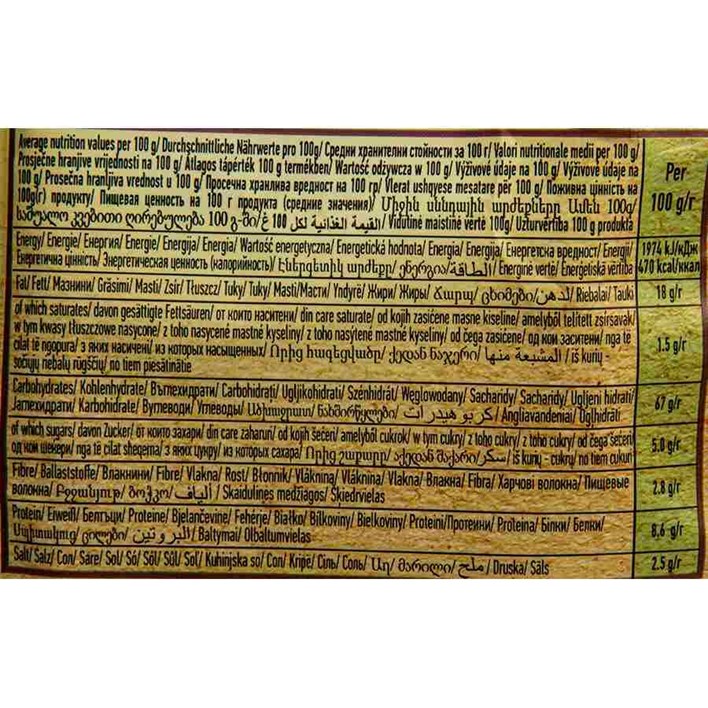 Average nutrition values per 100 g/ Durchschnittliche Nährwerte pro 100g/ Средни хранителни стойности за 100 г/ Valori nutritionale medii per 100 g/
Prosječne hranjive vrijednosti na 100 g/ Átlagos tápérték 100 g termékben/ Wartość odżywcza w 100 g/ Výživové údaje na 100 g/ Výživové údaje na
100 g/ Prosečna hranljiva vrednost u 100 g/ Просечна хранлива вредност на 100 гр/ Vlerat ushqyese mesatare për 100 g/ Поживна цінність на
100g(г) продукту/ Пищевая ценность на 100 г продукта (средние значения)/ Միջին սննդային արժեքները Ամեն 100գ/
საშუალო კვებითი ღირებულება 100 გ-ში/ القيمة الغذائية لكل 100 غ/ Vidutinė maistinė vertė 100g/ Uzturvērtība 100 g produkta
Per
100 g/г
Energy/ Energie/ Енергия/ Energie/ Energija/ Energia/ Wartość energetyczna/ Energetická hodnota/ Energia/ Energija/ Енергетска вредност/ Energji/
Енергетична цінність/ Энергетическая ценность (калорийность)/ Էներգետիկ արժեքը/ ენერგია/ الطاقة/ Energinė vertė/ Enerģētiskā vērtība
1974 kJ/кДж
470 kcal/ккал
Fat/ Fett/ Мазнини/ Grăsimi/ Masti/ Zsír/ Tłuszcz/ Tuky/ Tuky/ Masti/Масти/ Yndyrë/ Жири/ Жиры/ Ճարպ/ ცხიმები/ لدهن/ Riebalai/ Tauki
18 g/г
of which saturates/ davon gesättigte Fettsäuren/ от които наситени/ din care saturate/ od kojih zasićene masne kiseline/ amelyből telített zsírsavak/
w tym kwasy tłuszczowe nasycone/ z toho nasycené mastné kyseliny/ z toho nasýtené mastné kyseliny/ od čega zasićene/ од кои заситени/ nga të
cilat të ngopura/ з яких насичені/ из которых насыщенных/ Որից հագեցվածը/ ქედან ნაჯერი/ المشبعة منها/ iš kurių -
sočiųjų riebalų rūgščių/ no tiem piesātinātie
1.5 g/г
Carbohydrates/ Kohlenhydrate/ Въглехидрати/ Carbohidrați/ Ugljikohidrati/ Szénhidrát/ Węglowodany/ Sacharidy/ Sacharidy/ Ugljeni hidrati/
Јаглехидрати/ Karbohidrate/ Вуглеводи/ Углеводы/ Ածխաջրատ/ ნახშირწყლები/ كربوهيدرات/ Angliavandeniai/ Ogļhidrāti
67 g/г
of which sugars/ davon Zucker/ от които захари/ din care zaharuri/ od kojih šećeri/ amelyből cukrok/ w tym cukry/ z toho cukry/ z toho cukry/ od čega šećeri/
од кои шеќери/ nga të cilat sheqerna/ з яких цукру/ из которых сахара/ Որից շաքարը/ აქედან შაქარი/ سكر/ iš kurių - cukrų/ no tiem cukuri
5.0 g/г
Fibre/ Ballaststoffe/ Влакнини/ Fibre/ Vlakna/ Rost/ Błonnik/ Vláknina/ Vláknina/ Vlakna/ Влакна/ Fibra/ Харчові волокна/ Пищевые
волокна/ Բջջանյութ/ ბოჭკო/ ألياف/ Skaidulinės medžiagos/ Šķiedrvielas
2.8 g/г
Protein/ Eiweiß/ Белтъци/ Proteine/ Bjelančevine/ Fehérje/ Białko/ Bílkoviny/ Bielkoviny/ Proteini/Протеини/ Proteina/ Білки/ Белки/
Սպիտակուց/ ცილები/ البروتين/ Baltymai/ Olbaltumvielas
8,6 g/г
Salt/ Salz/ Сол/ Sare/ Sol/ Só/ Sól/ Sůl/ Soľ/ Kuhinjska so/ Сол/ Kripë/ Сіль/ Соль/ Աղ/ მარილი/ ملح/ Druska/ Sāls
2.5 g/г